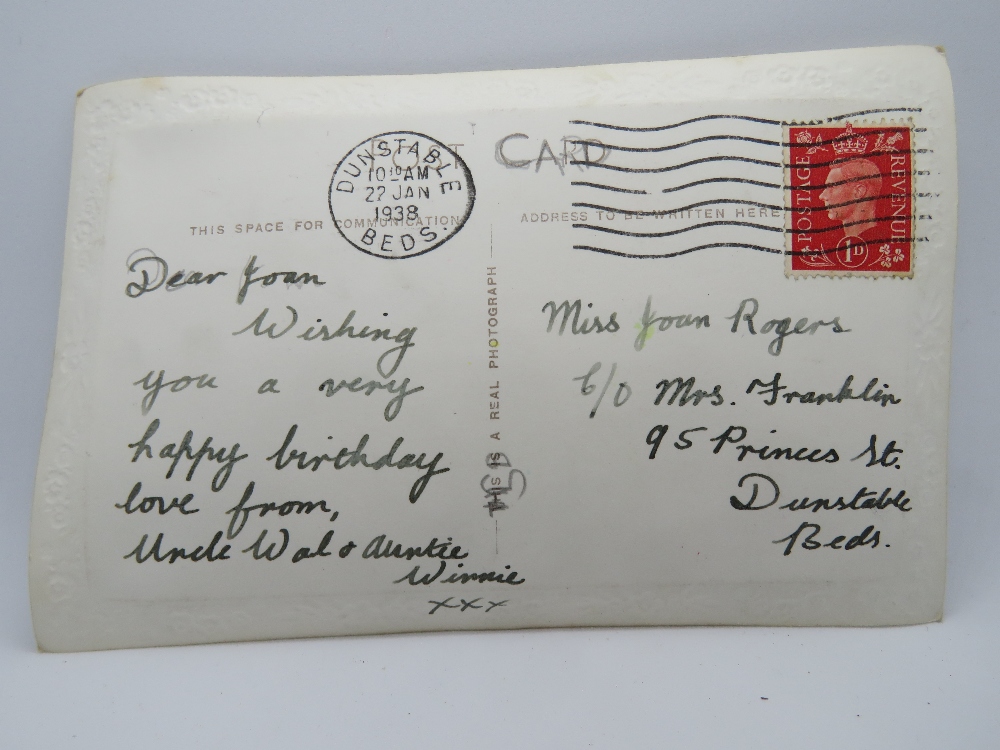 POST CARD
DUNSTABLE
10 10 AM
22 JAN
1938
BEDS.
POSTAGE REVENUE
1D
THIS SPACE FOR COMMUNICATION
ADDRESS TO BE WRITTEN HERE
THIS IS A REAL PHOTOGRAPH
Dear Joan
Wishing
you a very
happy birthday
love from,
Uncle Wal & Auntie
Winnie
xxx
Miss Joan Rogers
C/O Mrs. Franklin
95 Princes St.
Dunstable
Beds.